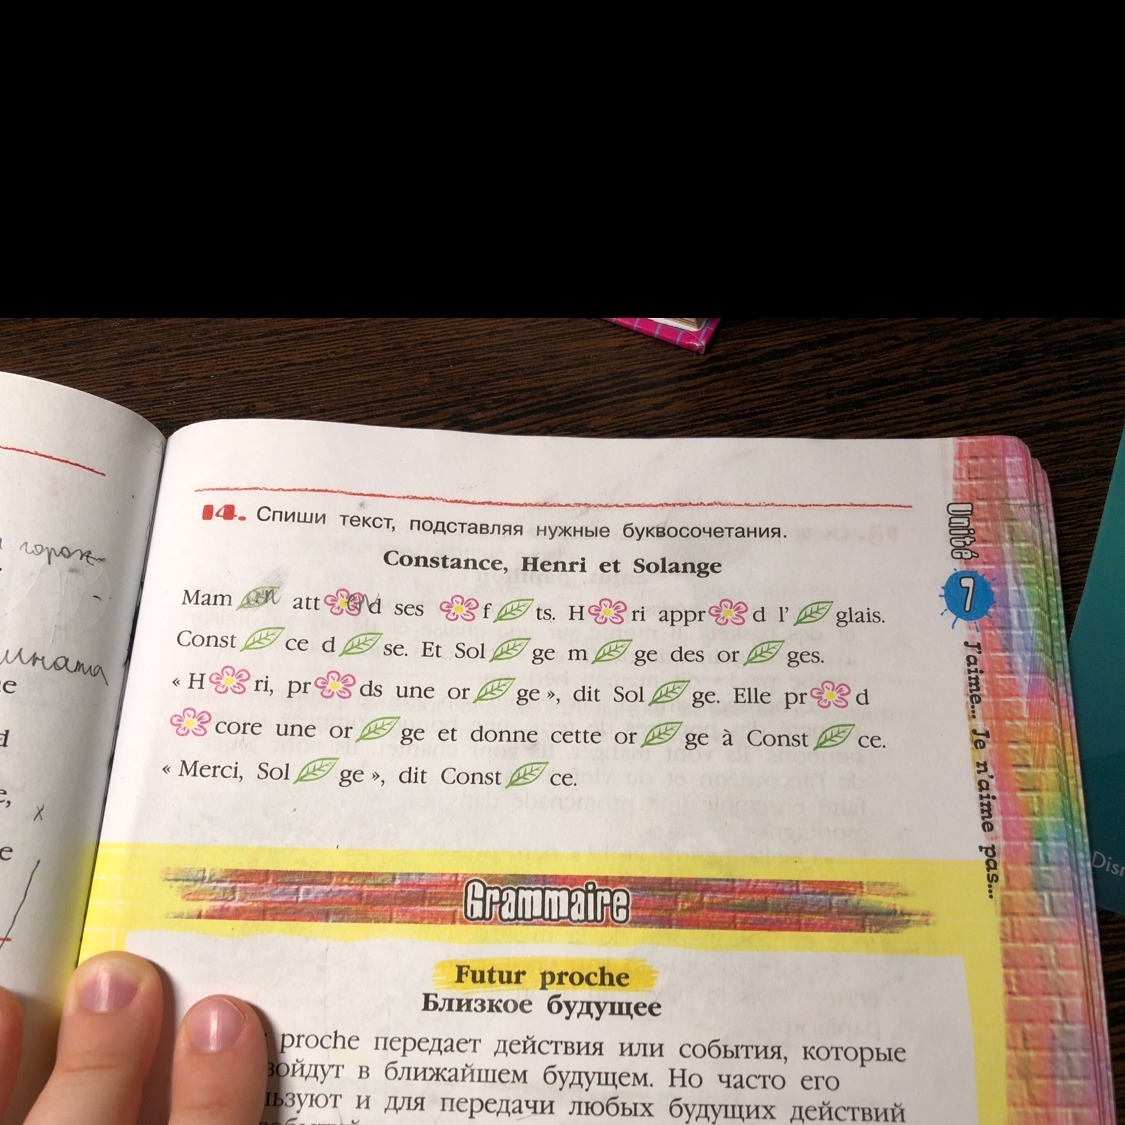 14. Спиши текст, подставляя нужные буквосочетания.
Constance, Henri et Solange
Mam an att en d ses f ts. H ri appr d l' glais.
Const ce d se. Et Sol ge m ge des or ges.
« H ri, pr ds une or ge », dit Sol ge. Elle pr d
core une or ge et donne cette or ge à Const ce.
« Merci, Sol ge », dit Const ce.
Grammaire
Futur proche
Близкое будущее
proche передает действия или события, которые
зойдут в ближайшем будущем. Но часто его
льзуют и для передачи любых будущих действий
Unité 7 J'aime... Je n'aime pas...